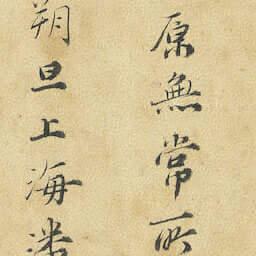 原無常所
朔旦上海潘